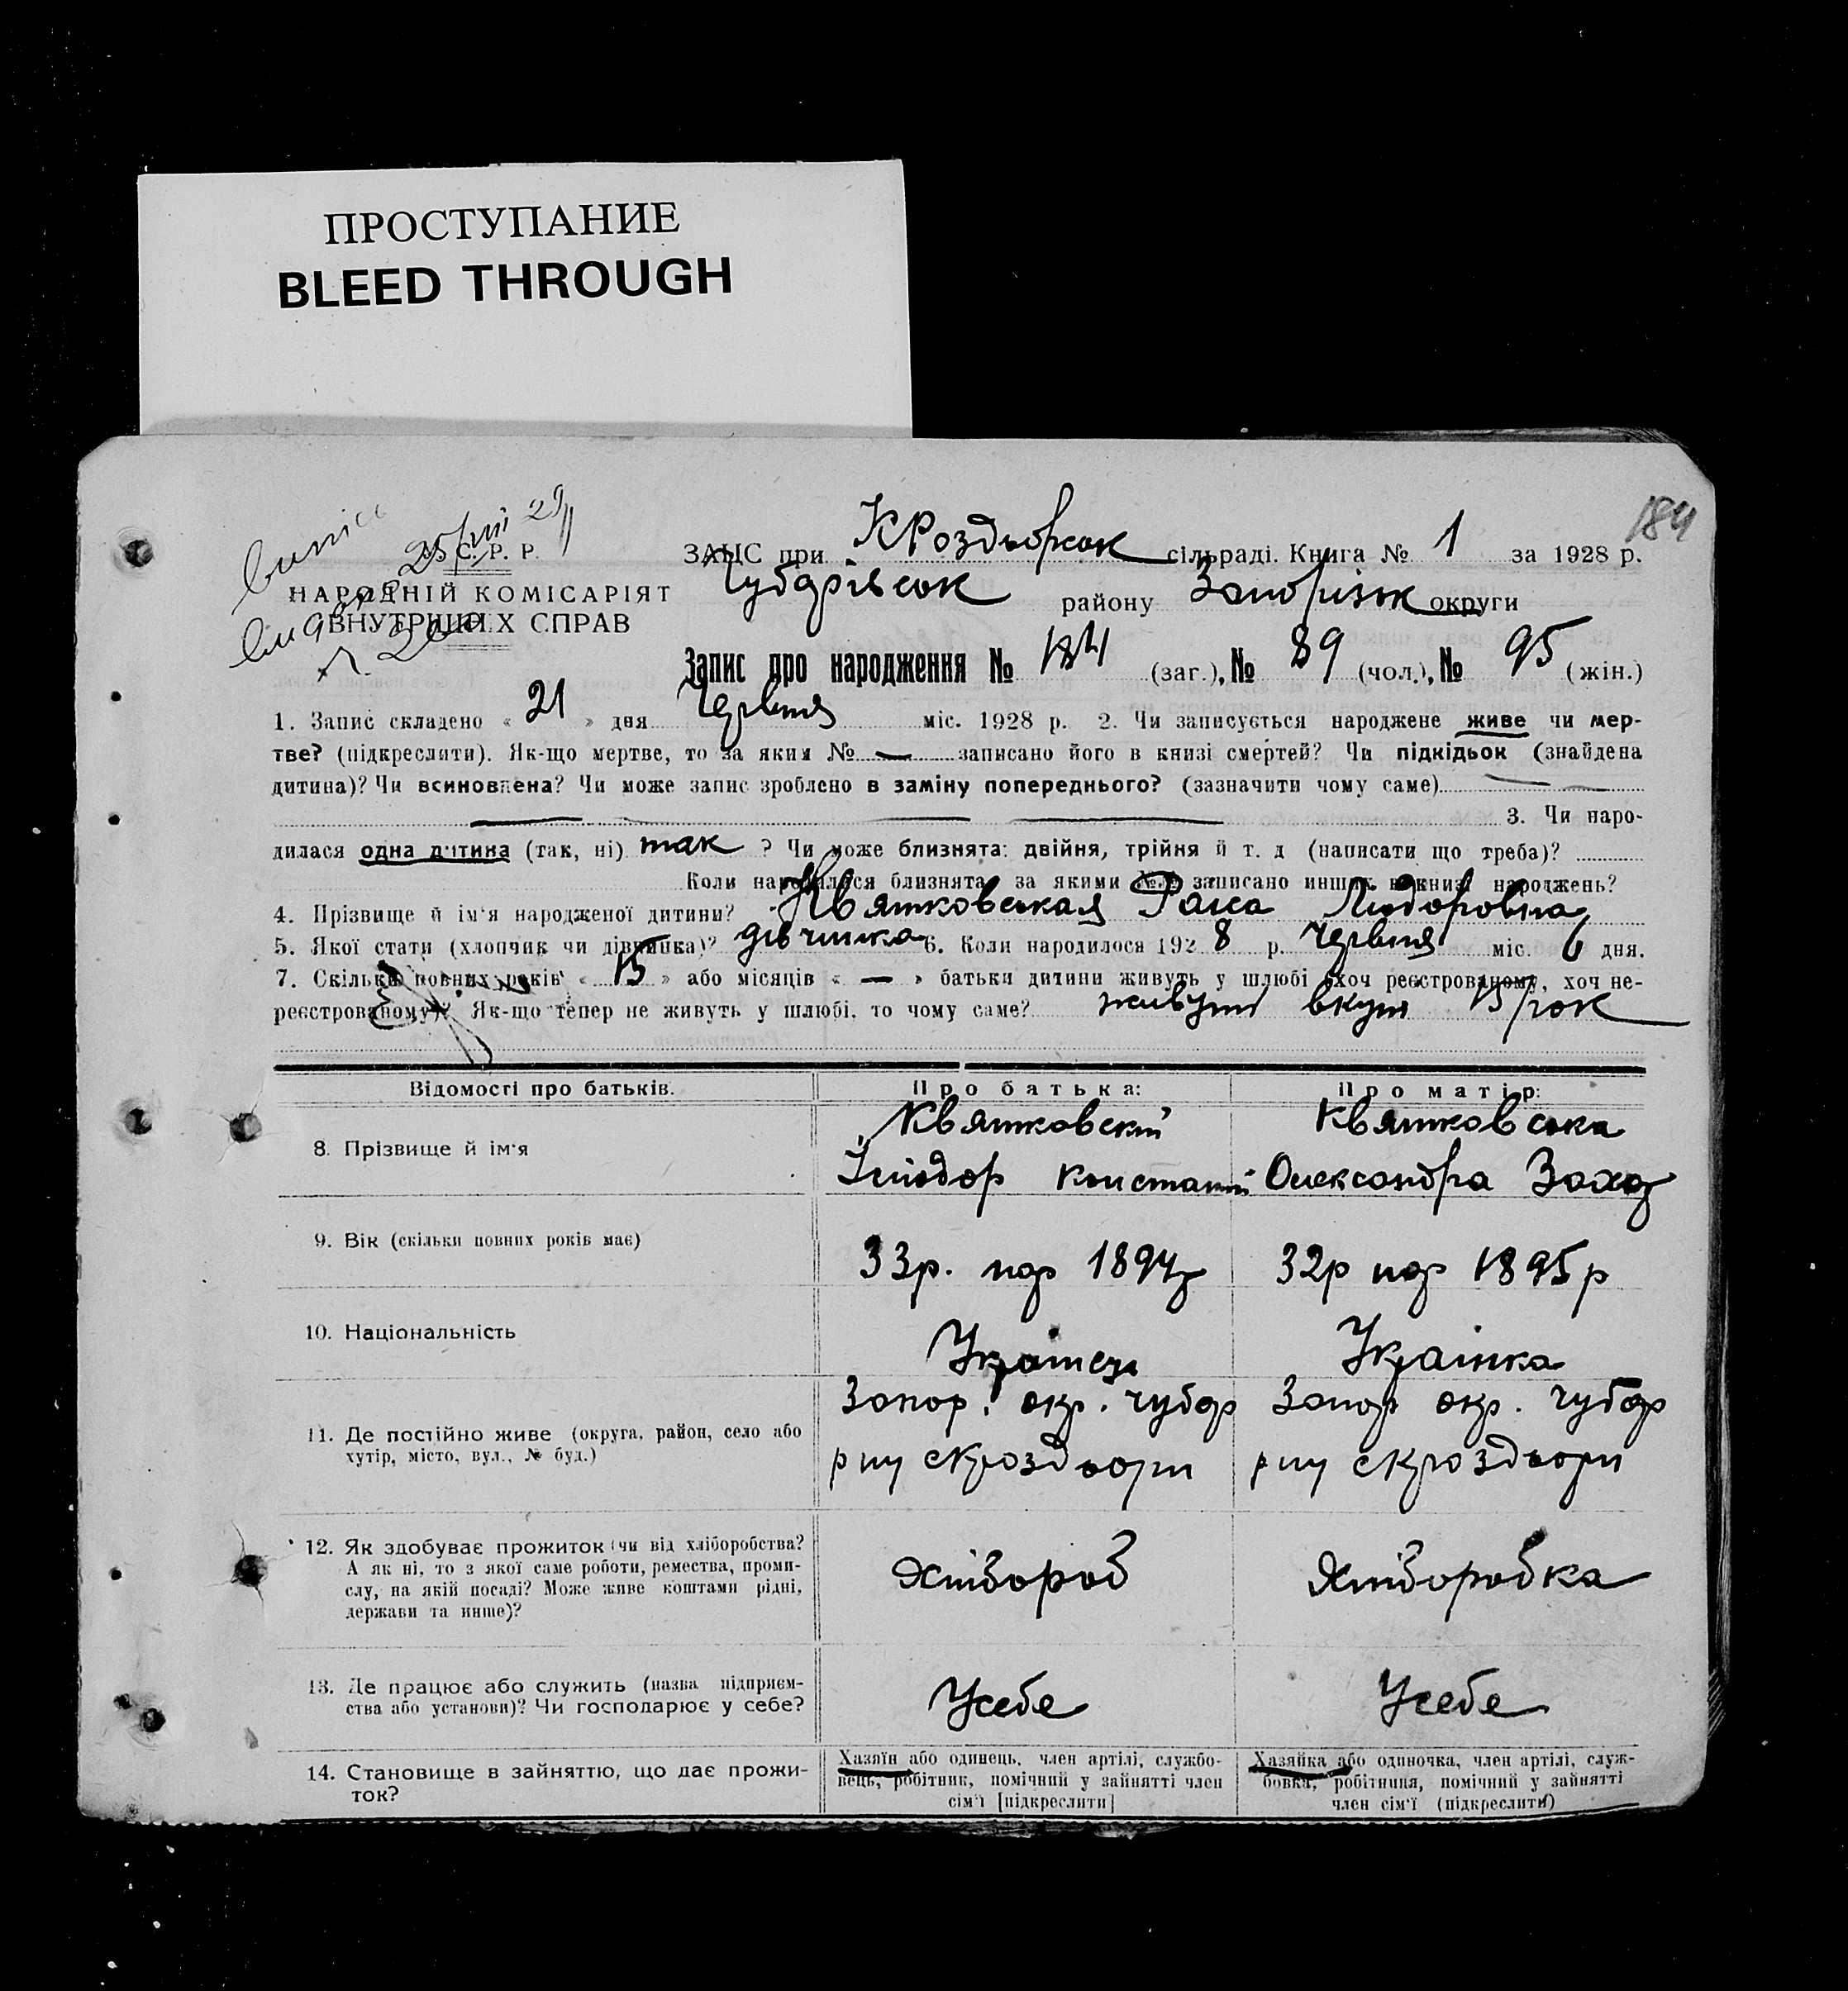 ПРОСТУПАНИЕ
BLEED THROUGH
184
У. С. Р. Р.
НАРОДНІЙ КОМІСАРІЯТ
ВНУТРІШНІХ СПРАВ
ЗАЦС при КРоздорськ сільраді. Книга № 1 за 1928 р.
Чубарівськ району Запорізьк округи
Запис про народження № 184 (заг.), № 89 (чол.), № 95 (жін.)
1. Запис складено « 21 » дня Червня міс. 1928 р. 2. Чи записується народжене живе чи мер-
тве? (підкреслити). Як-що мертве, то за яким № — записано його в книзі смертей? Чи підкідьок (знайдена
дитина)? Чи всиновлена? Чи може запис зроблено в заміну попереднього? (зазначити чому саме)
3. Чи наро-
дилася одна дитина (так, ні) так ? Чи може близнята: двійня, трійня й т. д (написати що треба)?
Коли народилися близнята, за якими №№ записано инших в книзі народжень?
4. Прізвище й ім'я народженої дитини? Квятковськая Раиса Лиодоровна
5. Якої стати (хлопчик чи дівчинка)? дівчинка 6. Коли народилося 1928 р. Червня міс. 6 дня.
7. Скільки повних років « 15 » або місяців « — » батьки дитини живуть у шлюбі (хоч реєстрованому, хоч не-
реєстрованому)? Як-що тепер не живуть у шлюбі, то чому саме? живуть вкупі 15 рок
Відомості про батьків. Про батька: Про матір:
8. Прізвище й ім'я Квятковскій Квятковська
Іліодор Констант Олександра Захар
9. Вік (скільки повних років має) 33р. нар 1894р 32р нар 1895р
10. Національність Українець Українка
11. Де постійно живе (округа, район, село або
хутір, місто, вул., № буд.)
Запор. окр. чубар Запор окр. чубар
рну скроздори рну скроздори
12. Як здобуває прожиток (чи від хліборобства?
А як ні, то з якої саме роботи, ремества, проми-
слу, на якій посаді? Може живе коштами рідні,
держави та инше)?
Хлібороб Хліборобка
13. Де працює або служить (назва підприєм-
ства або установи)? Чи господарює у себе?
Усебе Усебе
14. Становище в зайняттю, що дає прожи-
ток?
Хазяїн або одинець, член артілі, службо-
вець, робітник, помічний у зайнятті член
сім'ї [підкреслити]
Хазяйка або одиночка, член артілі, служ-
бовка, робітниця, помічний у зайнятті
член сім'ї (підкреслити)